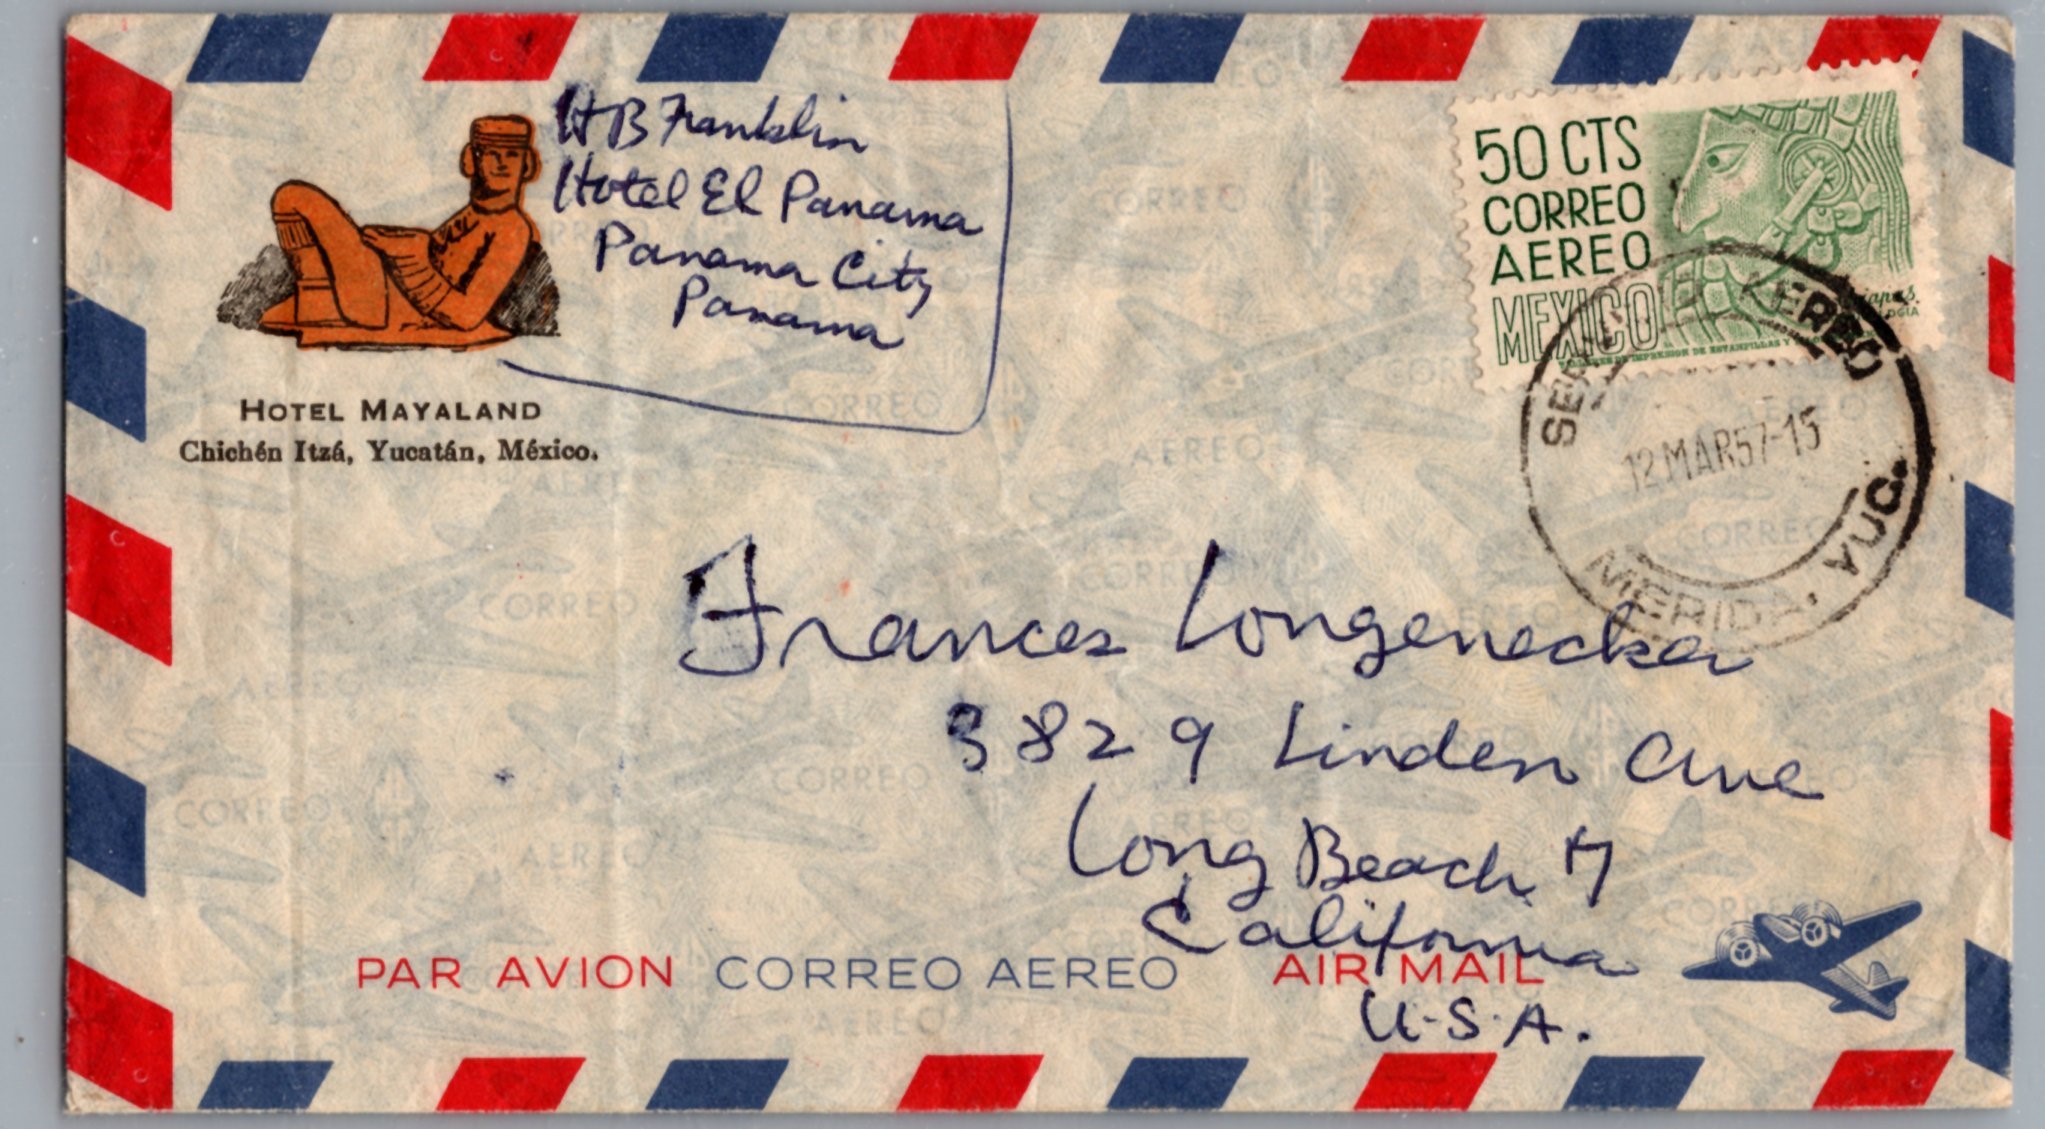 HB Franklin
Hotel El Panama
Panama City
Panama
HOTEL MAYALAND
Chichén Itzá, Yucatán, México.
50 CTS
CORREO
AEREO
MEXICO
AEREO
12 MAR 57-15
MERIDA, YUC.
Frances Longenecker
3829 Linden Ave
Long Beach 7
California
U.S.A.
PAR AVION CORREO AEREO AIR MAIL